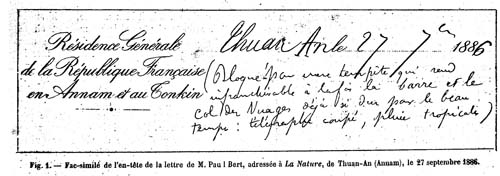 Résidence Générale
de la République Française
en Annam et au Tonkin
Thuan An le 27 7bre 1886
(Bloqué par une tempête qui rend
infranchissable à la fois la barre et le
col des Nuages déjà si dur par le beau
temps : télégraphe coupé, pluie tropicale)
Fig. 1. — Fac-similé de l'en-tête de la lettre de M. Pau l Bert, adressée à La Nature, de Thuan-An (Annam), le 27 septembre 1886.